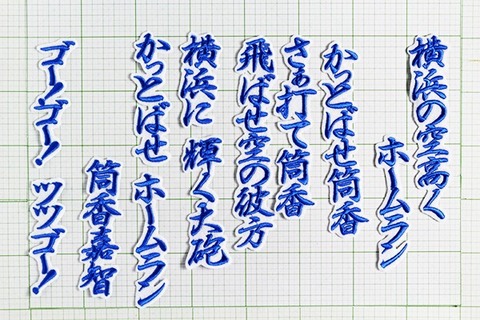 横浜の空高く
ホームラン
かっとばせ筒香
さぁ打て筒香
飛ばせ空の彼方
横浜に 輝く大砲
かっとばせ ホームラン
筒香嘉智
ゴー！ゴー！ ツツゴー！